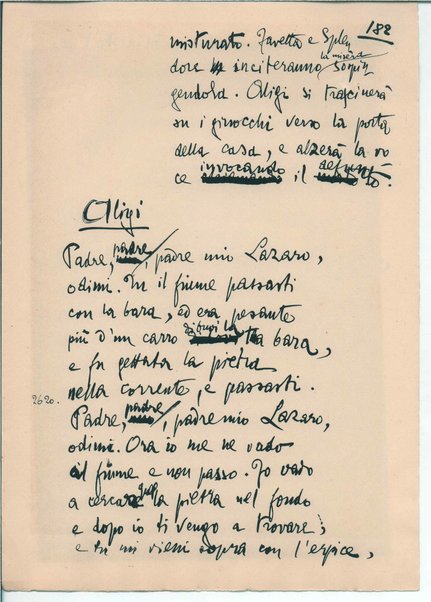 182
misturato. Favetta e Splen
dore inciteranno la misera sospin
gendola. Aligi si trascinerà
su i ginocchi verso la porta
della casa, e alzerà la vo
ce invocando il defunto.
Aligi
Padre, padre, padre mio Lazaro,
odimi. Tu il fiume passasti
con la bara, ed era pesante
più d'un carro di tupi la bara,
e fu gettata la pietra
nella corrente, e passasti.
2620.
Padre, padre, padre mio Lazaro,
odimi. Ora io me ne vado
al fiume e non passo. Io vado
a cercare quella pietra nel fondo
e dopo io ti vengo a trovare;
e tu mi vieni sopra con l'erpice,